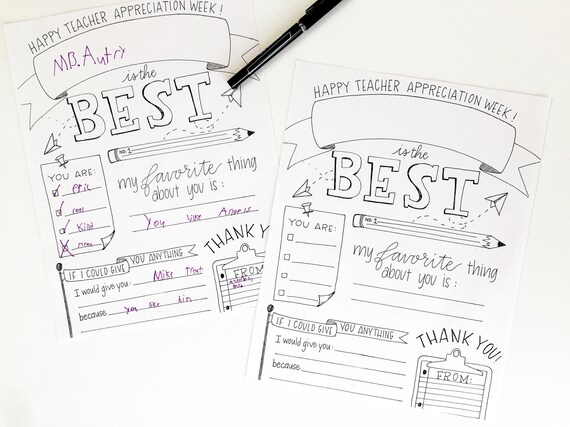 HAPPY TEACHER APPRECIATION WEEK!
MB. Autry
is the
BEST
NO. 1
YOU ARE:
Epic
cool
Kind
mean
my favorite thing
about you is:
You like Angels
THANK Y
IF I COULD GIVE YOU ANYTHING
I would give you: Mike Trout
because you like him
FROM:
HAPPY TEACHER APPRECIATION WEEK!
is the
BEST
NO. 1
YOU ARE:
my favorite thing
about you is:
IF I COULD GIVE YOU ANYTHING
I would give you:
because
THANK YOU!
FROM: